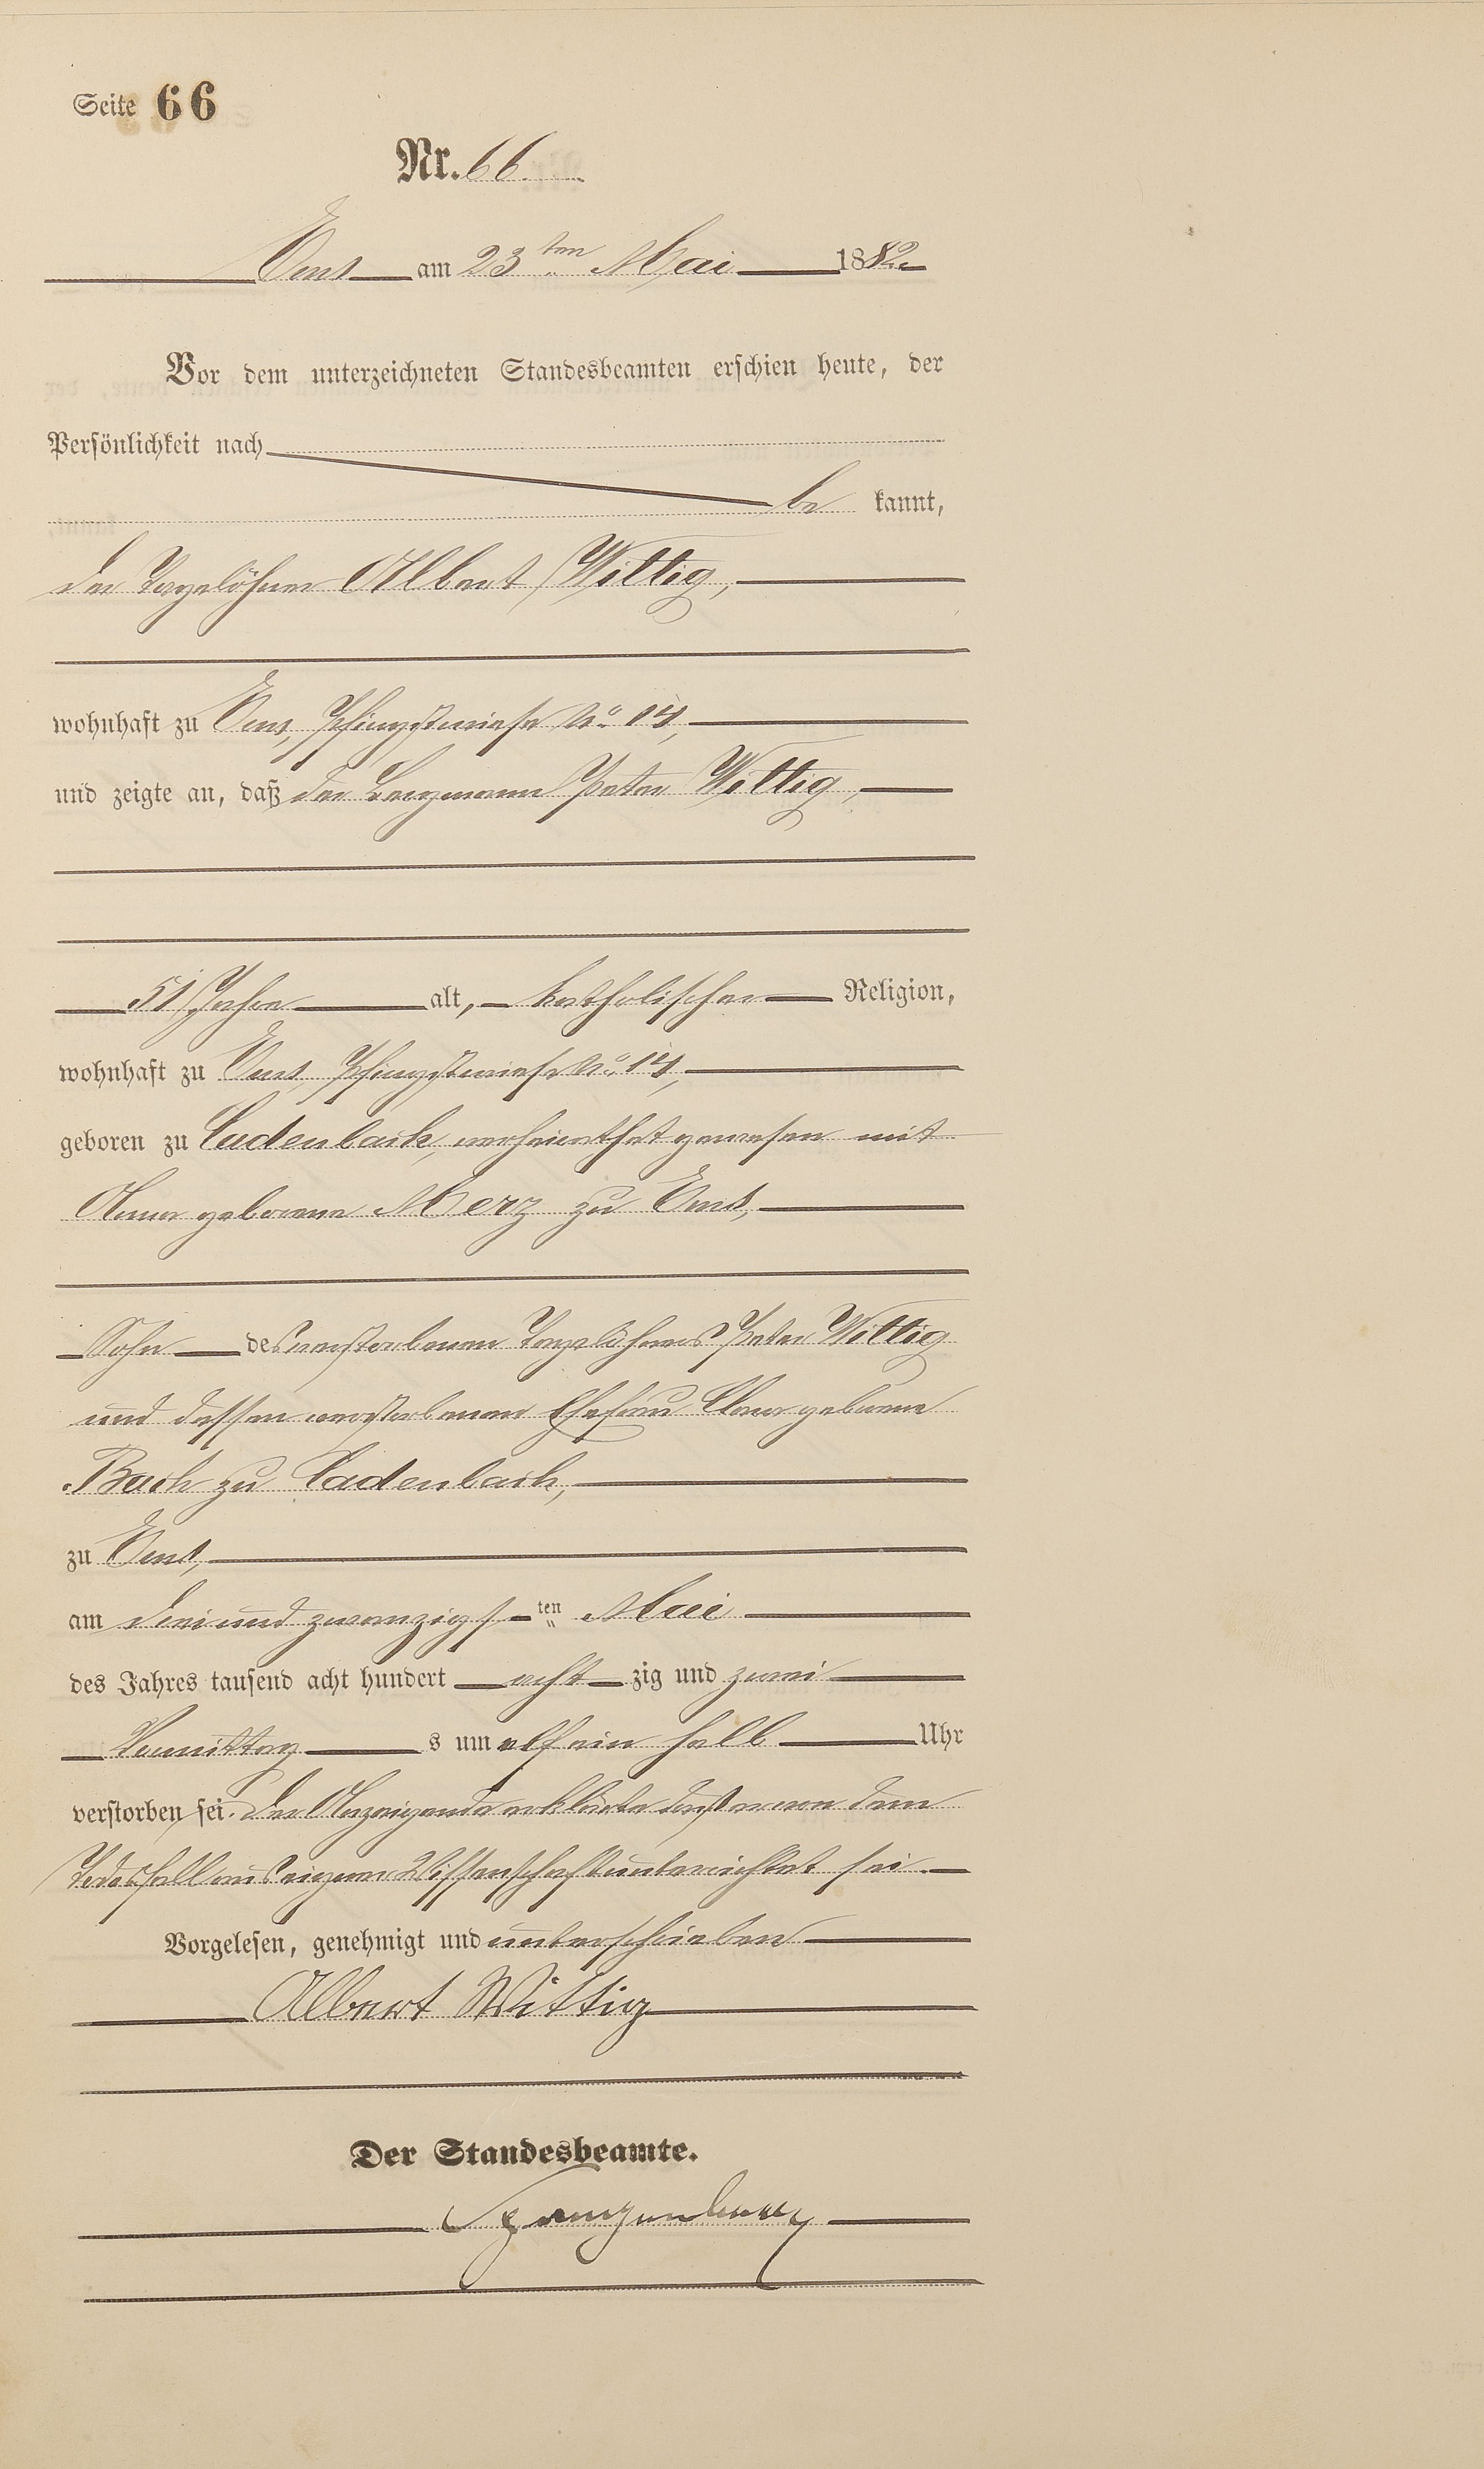 Seite 66
Nr. 66.
Ems am 23ten Mai 1882.
Vor dem unterzeichneten Standesbeamten erschien heute, der
Persönlichkeit nach
be kannt,
der Tagelöhner Albert Wittig,
wohnhaft zu Ems, Pfingstwiese No. 14,
und zeigte an, daß der Bergmann Peter Wittig,
51 Jahre alt, katholischer Religion,
wohnhaft zu Ems, Pfingstwiese No. 14,
geboren zu Cadenbach, verheirathet gewesen mit
Anna geborene Merz zu Ems,
Sohn des verstorbenen Tagelöhners Peter Wittig
und dessen verstorbenen Ehefrau geborene
Bach zu Cadenbach,
zu Ems,
am drei und zwanzigs ten Mai
des Jahres tausend acht hundert acht zig und zwei
Vormittag s um elf ein halb Uhr
verstorben sei. Der Anzeigende erklärte daß er von dem
Todesfall aus eigener Wissenschaft unterrichtet sei.
Vorgelesen, genehmigt und unterschrieben
Albert Wittig
Der Standesbeamte.
Spangenberg